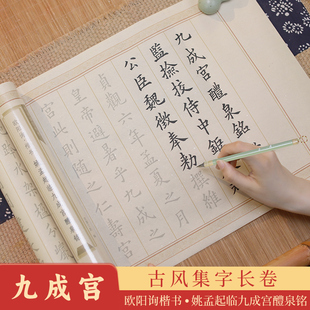 九成宮醴泉銘
監撿挍侍中鉅
公臣魏徵奉勅撰維
貞觀六年孟夏之月
皇帝避暑乎九成之
宮此則隨之仁壽宮
九成宫
古风集字长卷
欧阳询楷书•姚孟起临九成宫醴泉铭